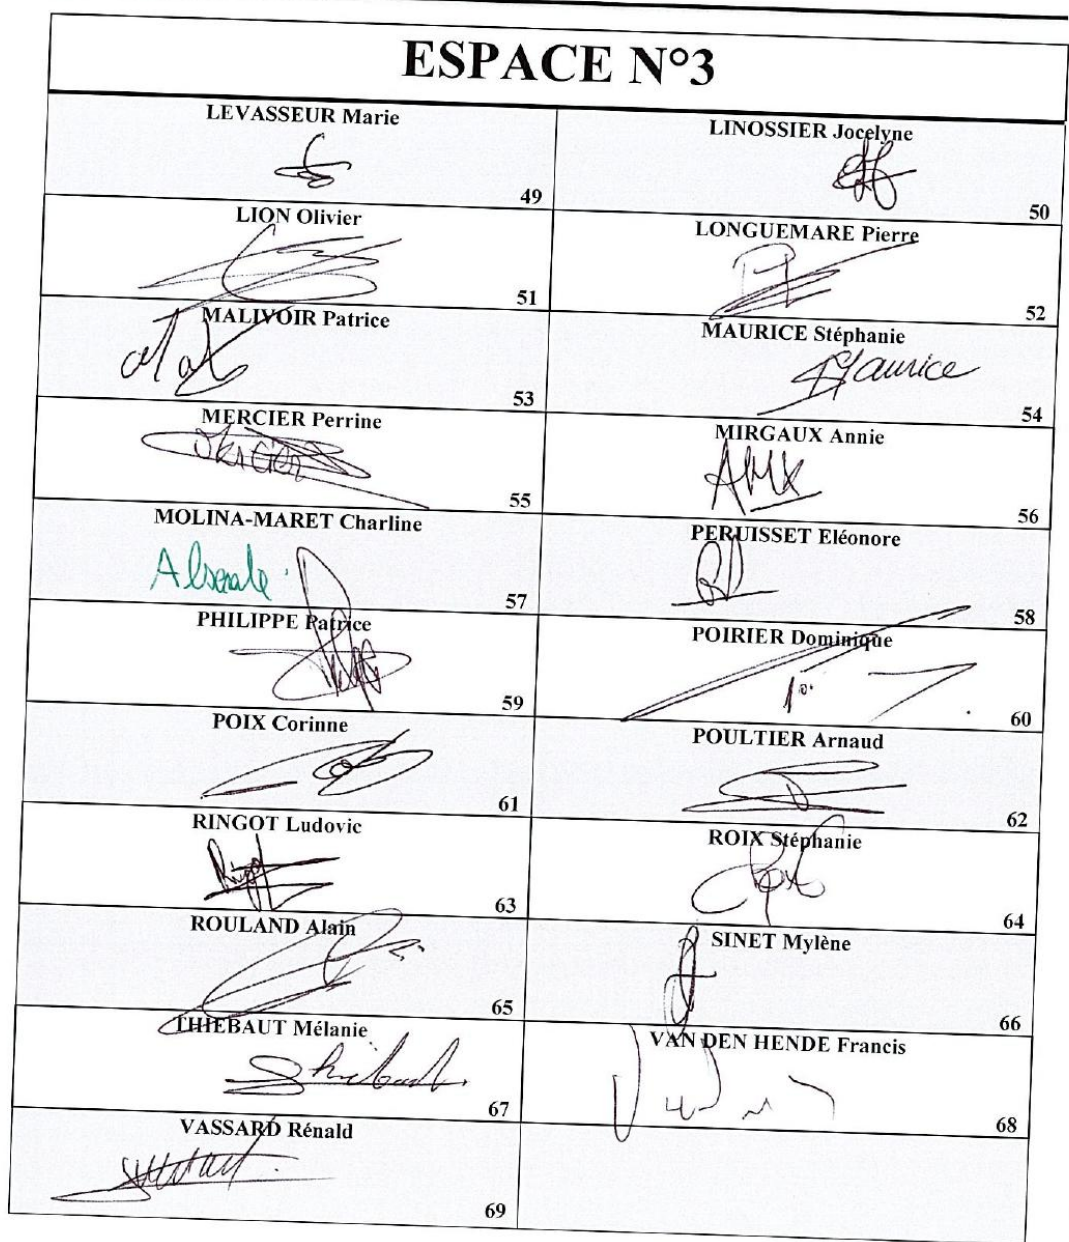 ESPACE N°3
LEVASSEUR Marie
49
LINOSSIER Jocelyne
50
LION Olivier
51
LONGUEMARE Pierre
52
MALIVOIR Patrice
53
MAURICE Stéphanie
Maurice
54
MERCIER Perrine
55
MIRGAUX Annie
56
MOLINA-MARET Charline
Absente
57
PERUISSET Eléonore
58
PHILIPPE Patrice
59
POIRIER Dominique
60
POIX Corinne
61
POULTIER Arnaud
62
RINGOT Ludovic
63
ROIX Stéphanie
64
ROULAND Alain
65
SINET Mylène
66
THIEBAUT Mélanie
67
VAN DEN HENDE Francis
68
VASSARD Rénald
69